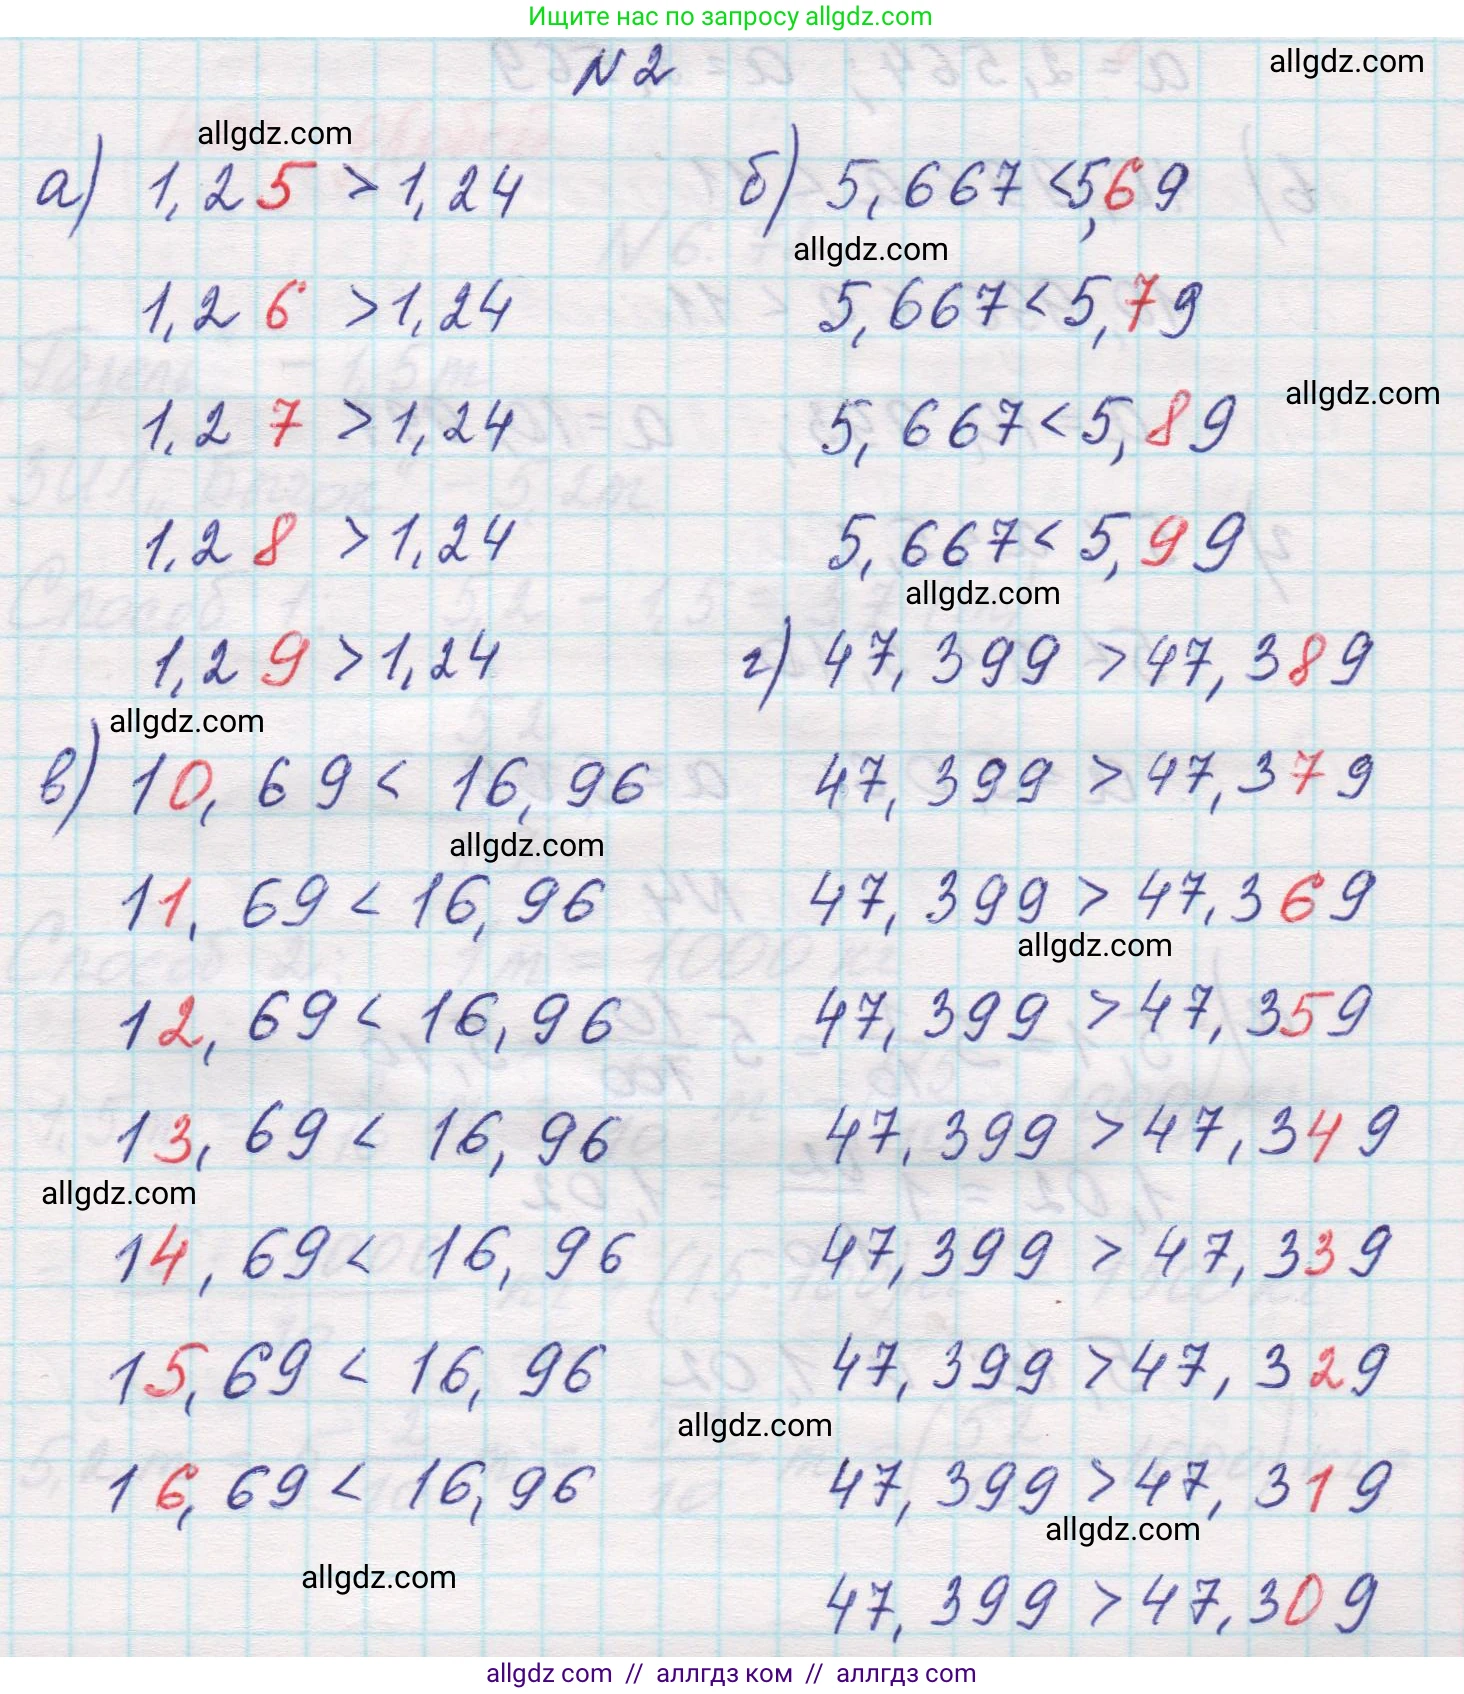 Ищите нас по запросу allgdz.com
N 2
allgdz.com
allgdz.com
а) 1,25 > 1,24
1,26 > 1,24
1,27 > 1,24
1,28 > 1,24
1,29 > 1,24
allgdz.com
б) 5,667 < 5,69
allgdz.com
5,667 < 5,79
allgdz.com
5,667 < 5,89
5,667 < 5,99
allgdz.com
в) 10,69 < 16,96
allgdz.com
11,69 < 16,96
12,69 < 16,96
13,69 < 16,96
allgdz.com
14,69 < 16,96
15,69 < 16,96
16,69 < 16,96
allgdz.com
г) 47,399 > 47,389
47,399 > 47,379
47,399 > 47,369
allgdz.com
47,399 > 47,359
47,399 > 47,349
47,399 > 47,339
47,399 > 47,329
allgdz.com
47,399 > 47,319
allgdz.com
47,399 > 47,309
allgdz com // аллгдз ком // аллгдз com